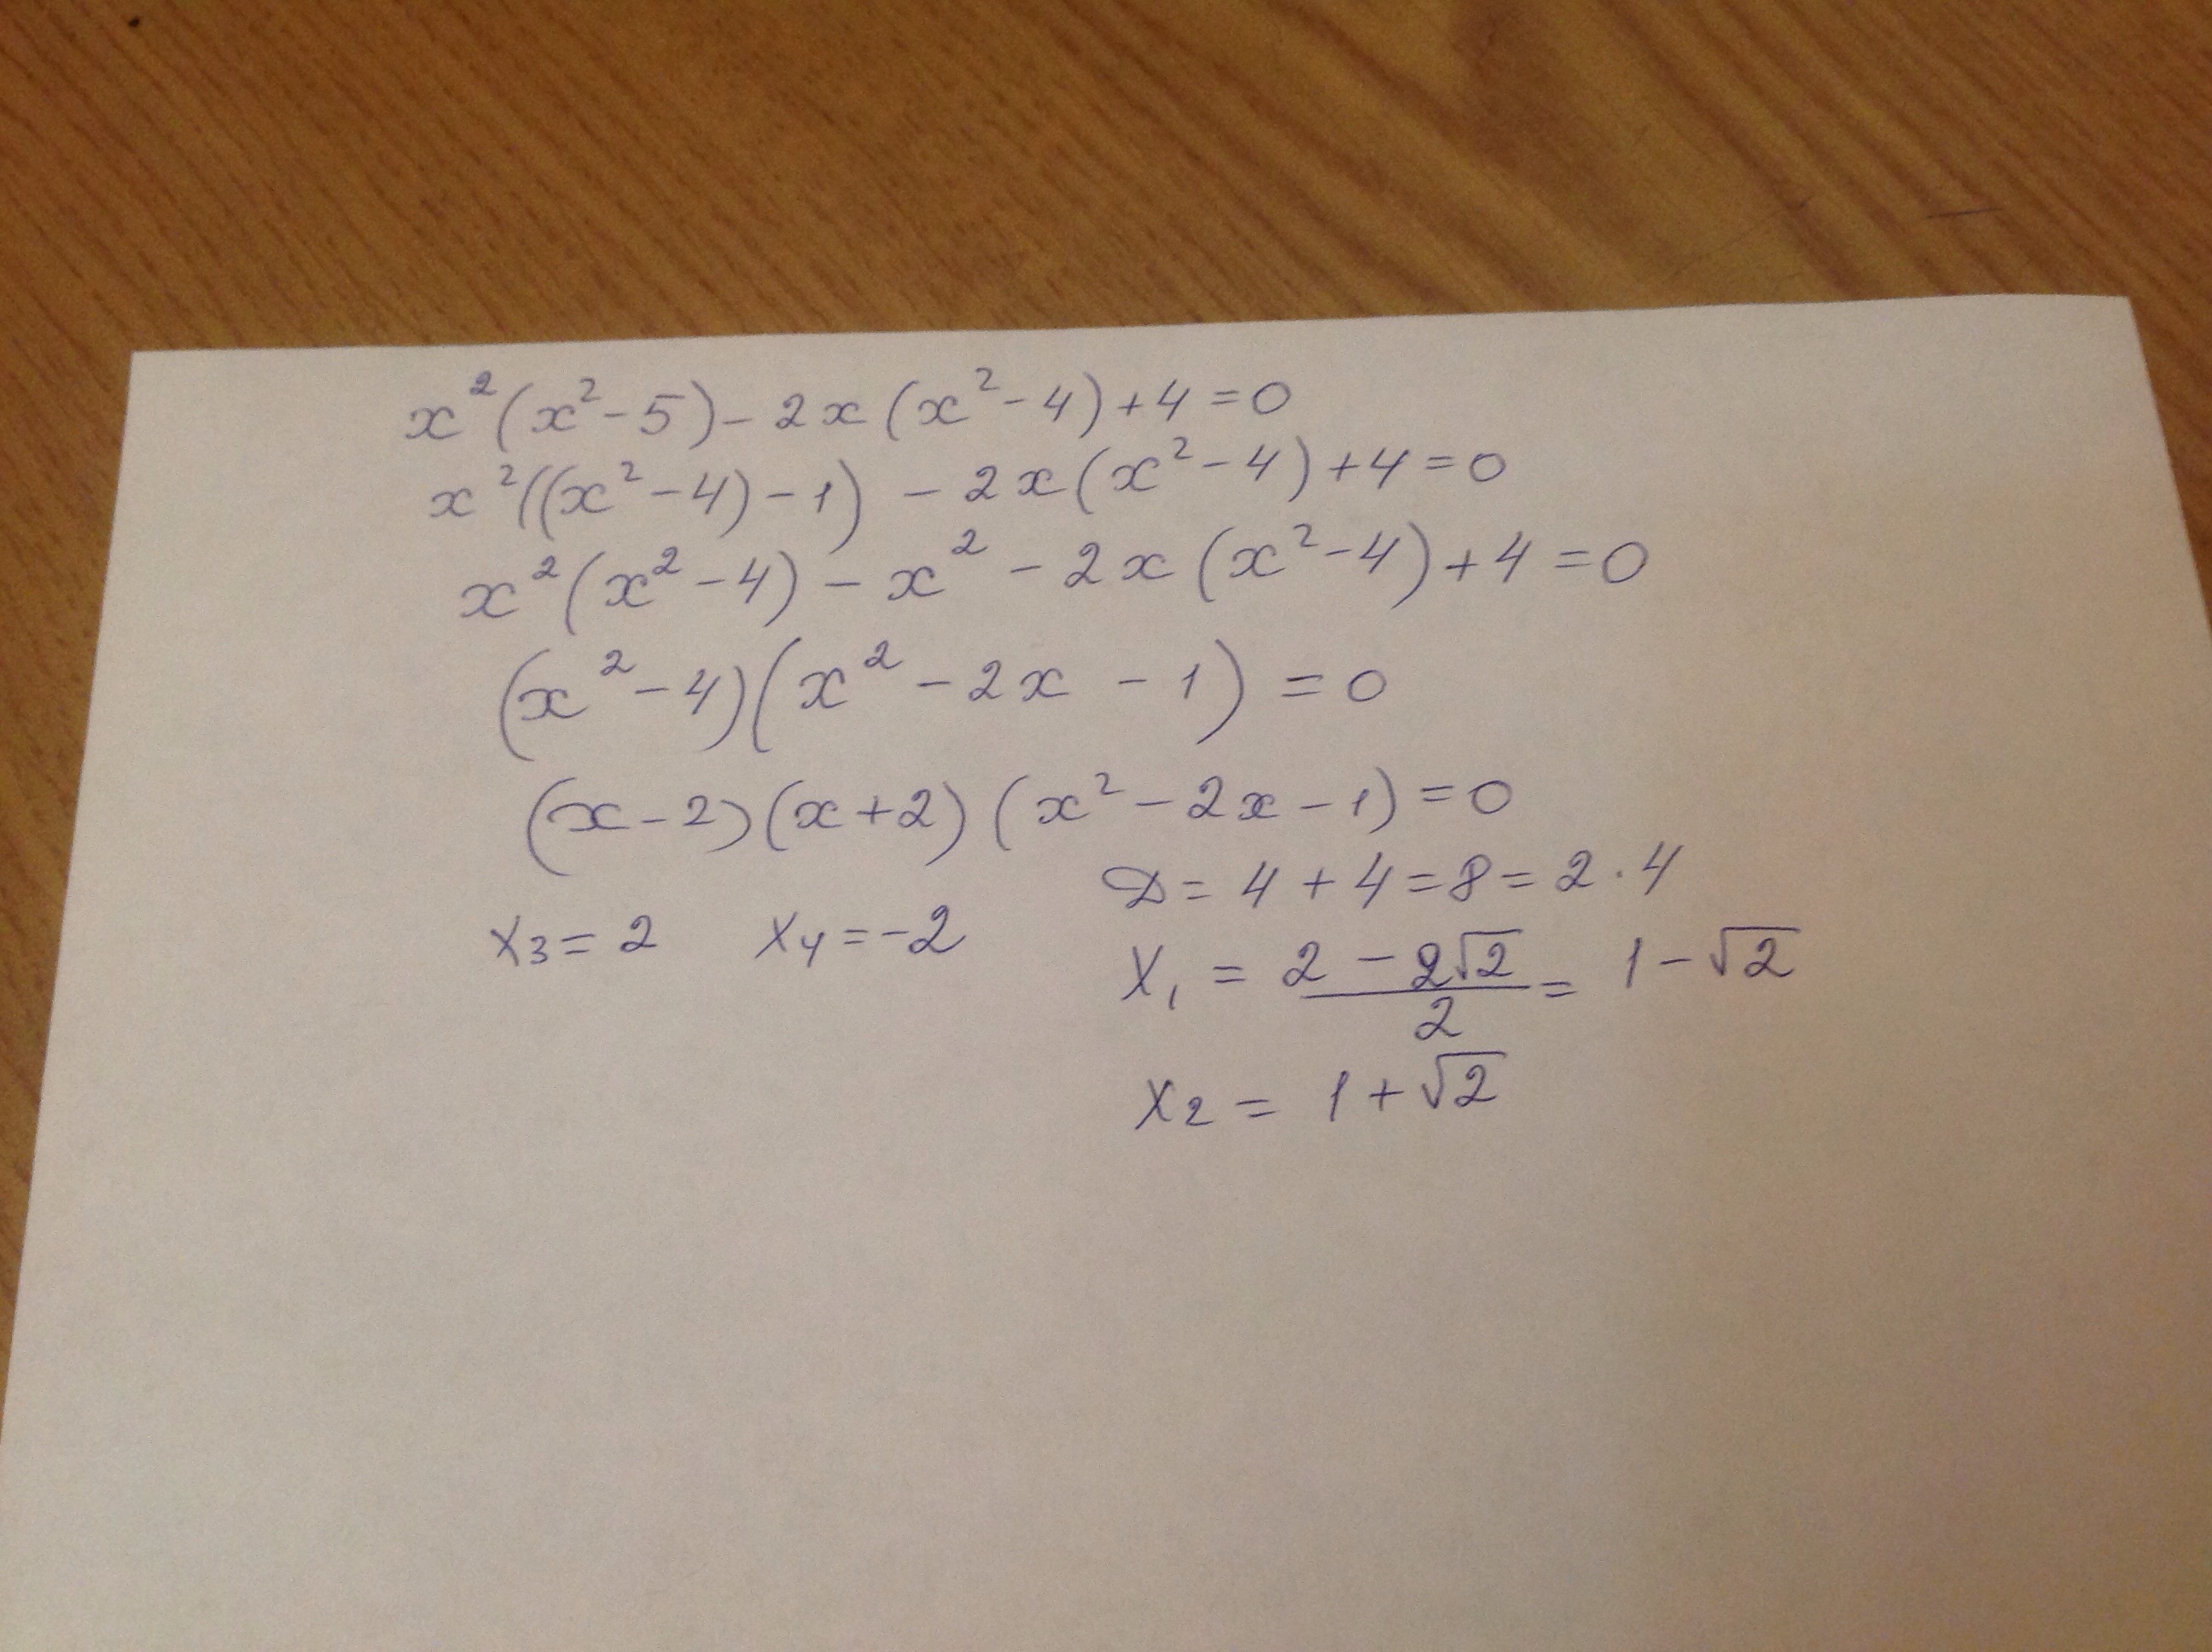 x²(x²-5)-2x(x²-4)+4=0
x²((x²-4)-1)-2x(x²-4)+4=0
x²(x²-4)-x²-2x(x²-4)+4=0
(x²-4)(x²-2x-1)=0
(x-2)(x+2)(x²-2x-1)=0
D=4+4=8=2·4
x₃=2 x₄=-2
x₁=(2-2√2)/2=1-√2
x₂=1+√2